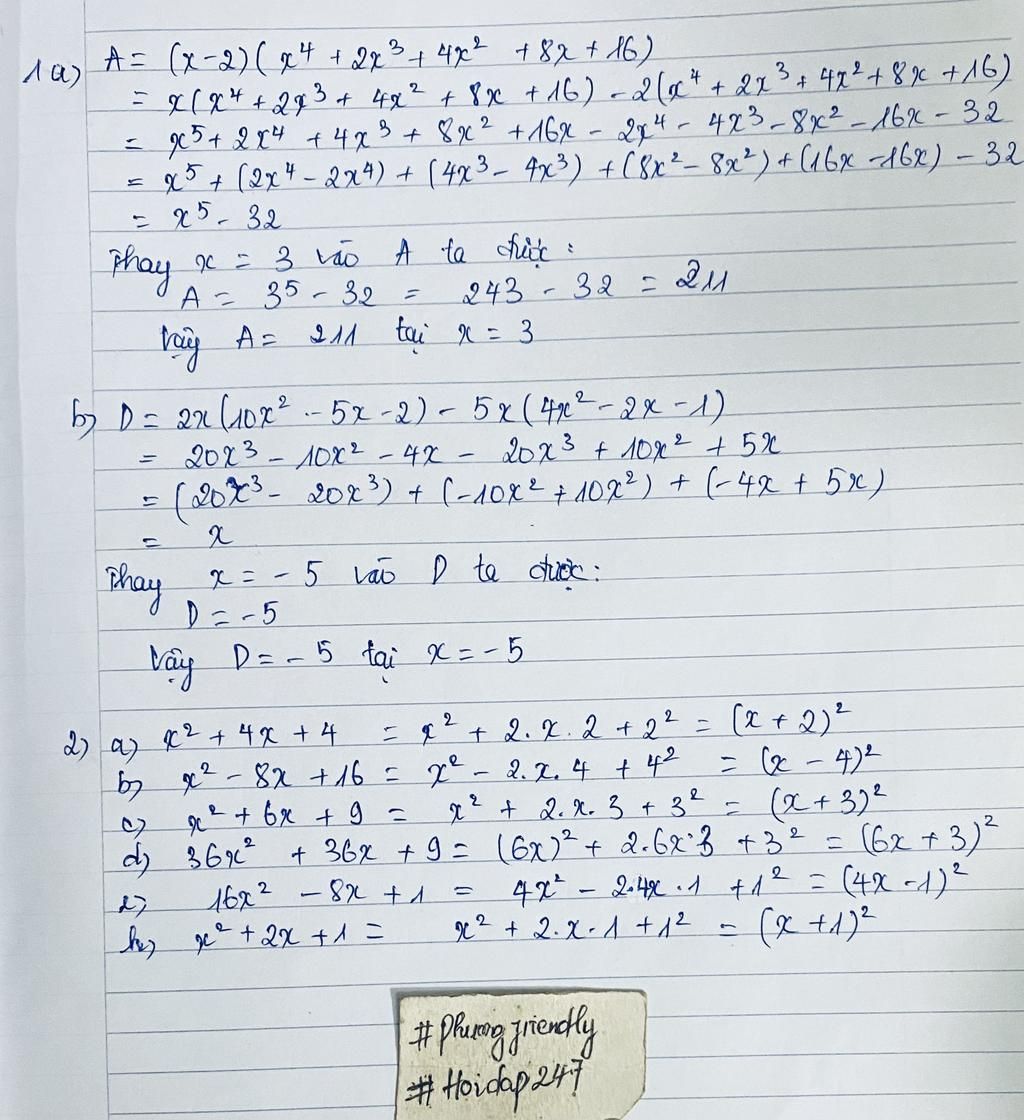 1a) A = (x-2)(x⁴ + 2x³ + 4x² + 8x + 16)
= x(x⁴ + 2x³ + 4x² + 8x + 16) - 2(x⁴ + 2x³ + 4x² + 8x + 16)
= x⁵ + 2x⁴ + 4x³ + 8x² + 16x - 2x⁴ - 4x³ - 8x² - 16x - 32
= x⁵ + (2x⁴ - 2x⁴) + (4x³ - 4x³) + (8x² - 8x²) + (16x - 16x) - 32
= x⁵ - 32
Thay x = 3 vào A ta được:
A = 3⁵ - 32 = 243 - 32 = 211
Vậy A = 211 tại x = 3
b) D = 2x(10x² - 5x - 2) - 5x(4x² - 2x - 1)
= 20x³ - 10x² - 4x - 20x³ + 10x² + 5x
= (20x³ - 20x³) + (-10x² + 10x²) + (-4x + 5x)
= x
Thay x = -5 vào D ta được:
D = -5
Vậy D = -5 tại x = -5
2) a) x² + 4x + 4 = x² + 2.x.2 + 2² = (x + 2)²
b) x² - 8x + 16 = x² - 2.x.4 + 4² = (x - 4)²
c) x² + 6x + 9 = x² + 2.x.3 + 3² = (x + 3)²
d) 36x² + 36x + 9 = (6x)² + 2.6x.3 + 3² = (6x + 3)²
e) 16x² - 8x + 1 = 4x² - 2.4x.1 + 1² = (4x - 1)²
h) x² + 2x + 1 = x² + 2.x.1 + 1² = (x + 1)²
#Phuongfriendly
#Hoidap247